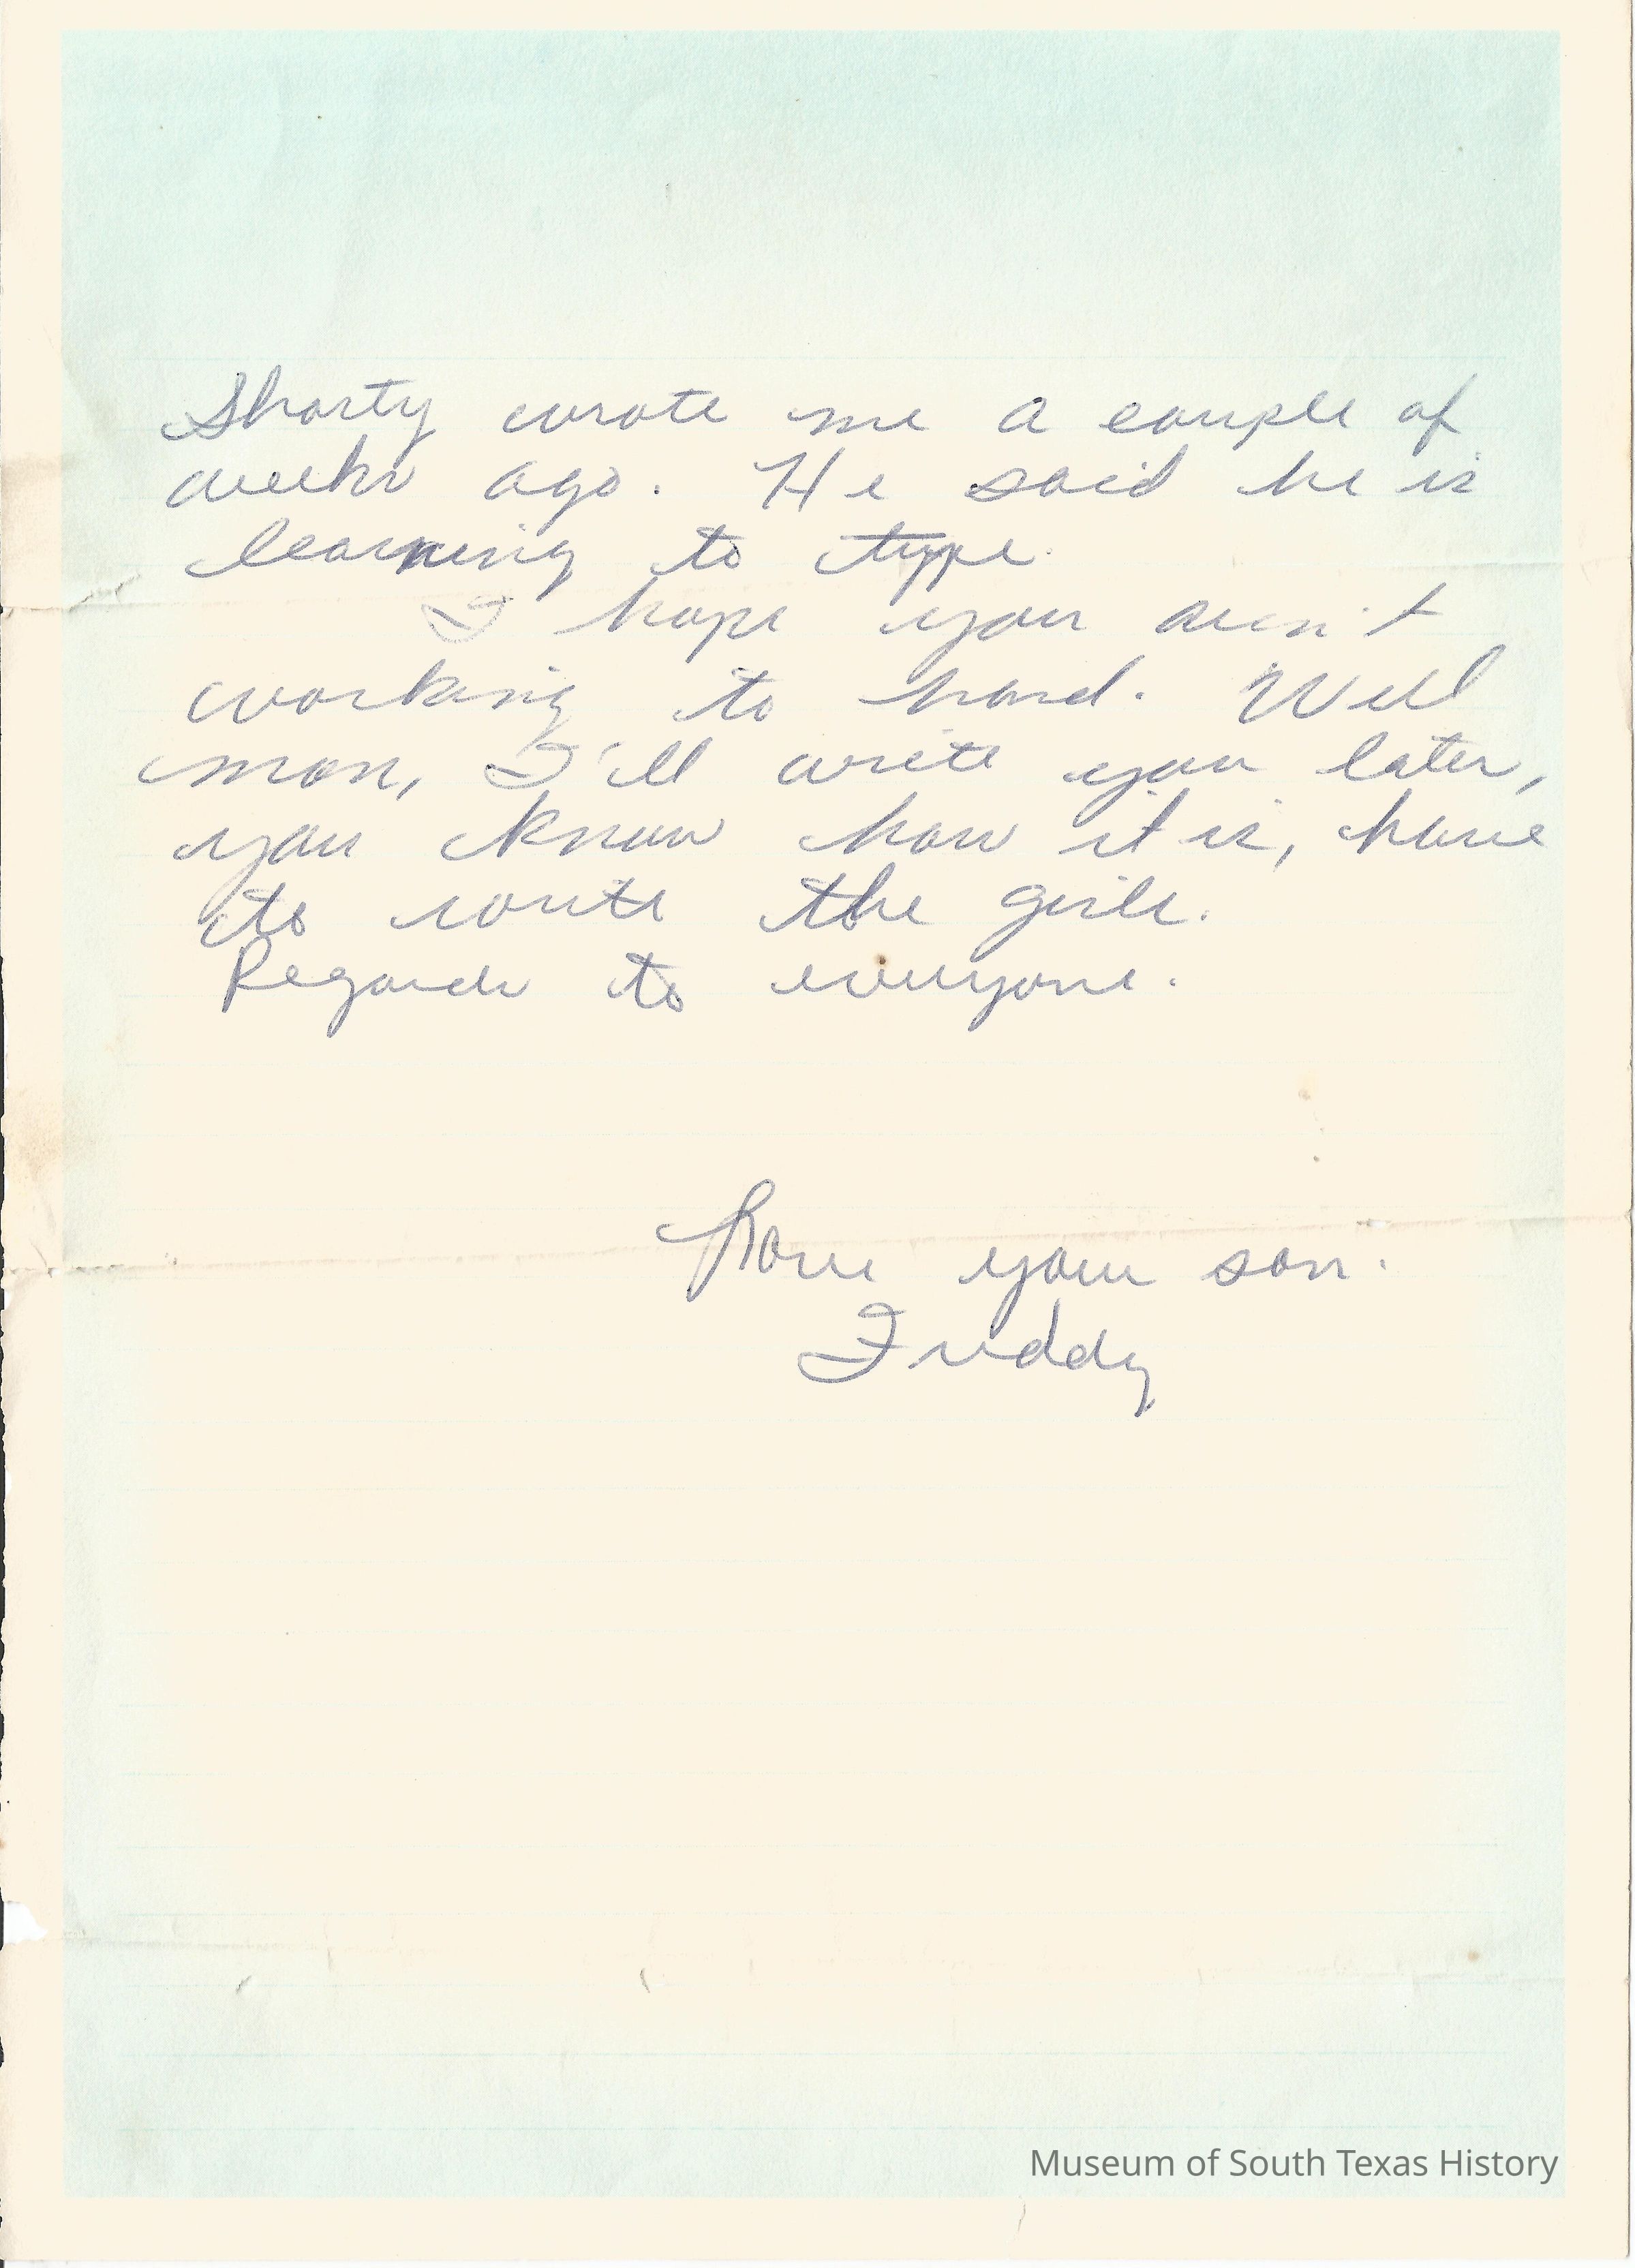 Shorty wrote me a couple of
weeks ago. He said he is
learning to type.
I hope you aren't
working to hard. Well
mom, I'll write you later,
you know how it is, have
to write the girls.
Regards to everyone.
Love your son.
Freddy
Museum of South Texas History